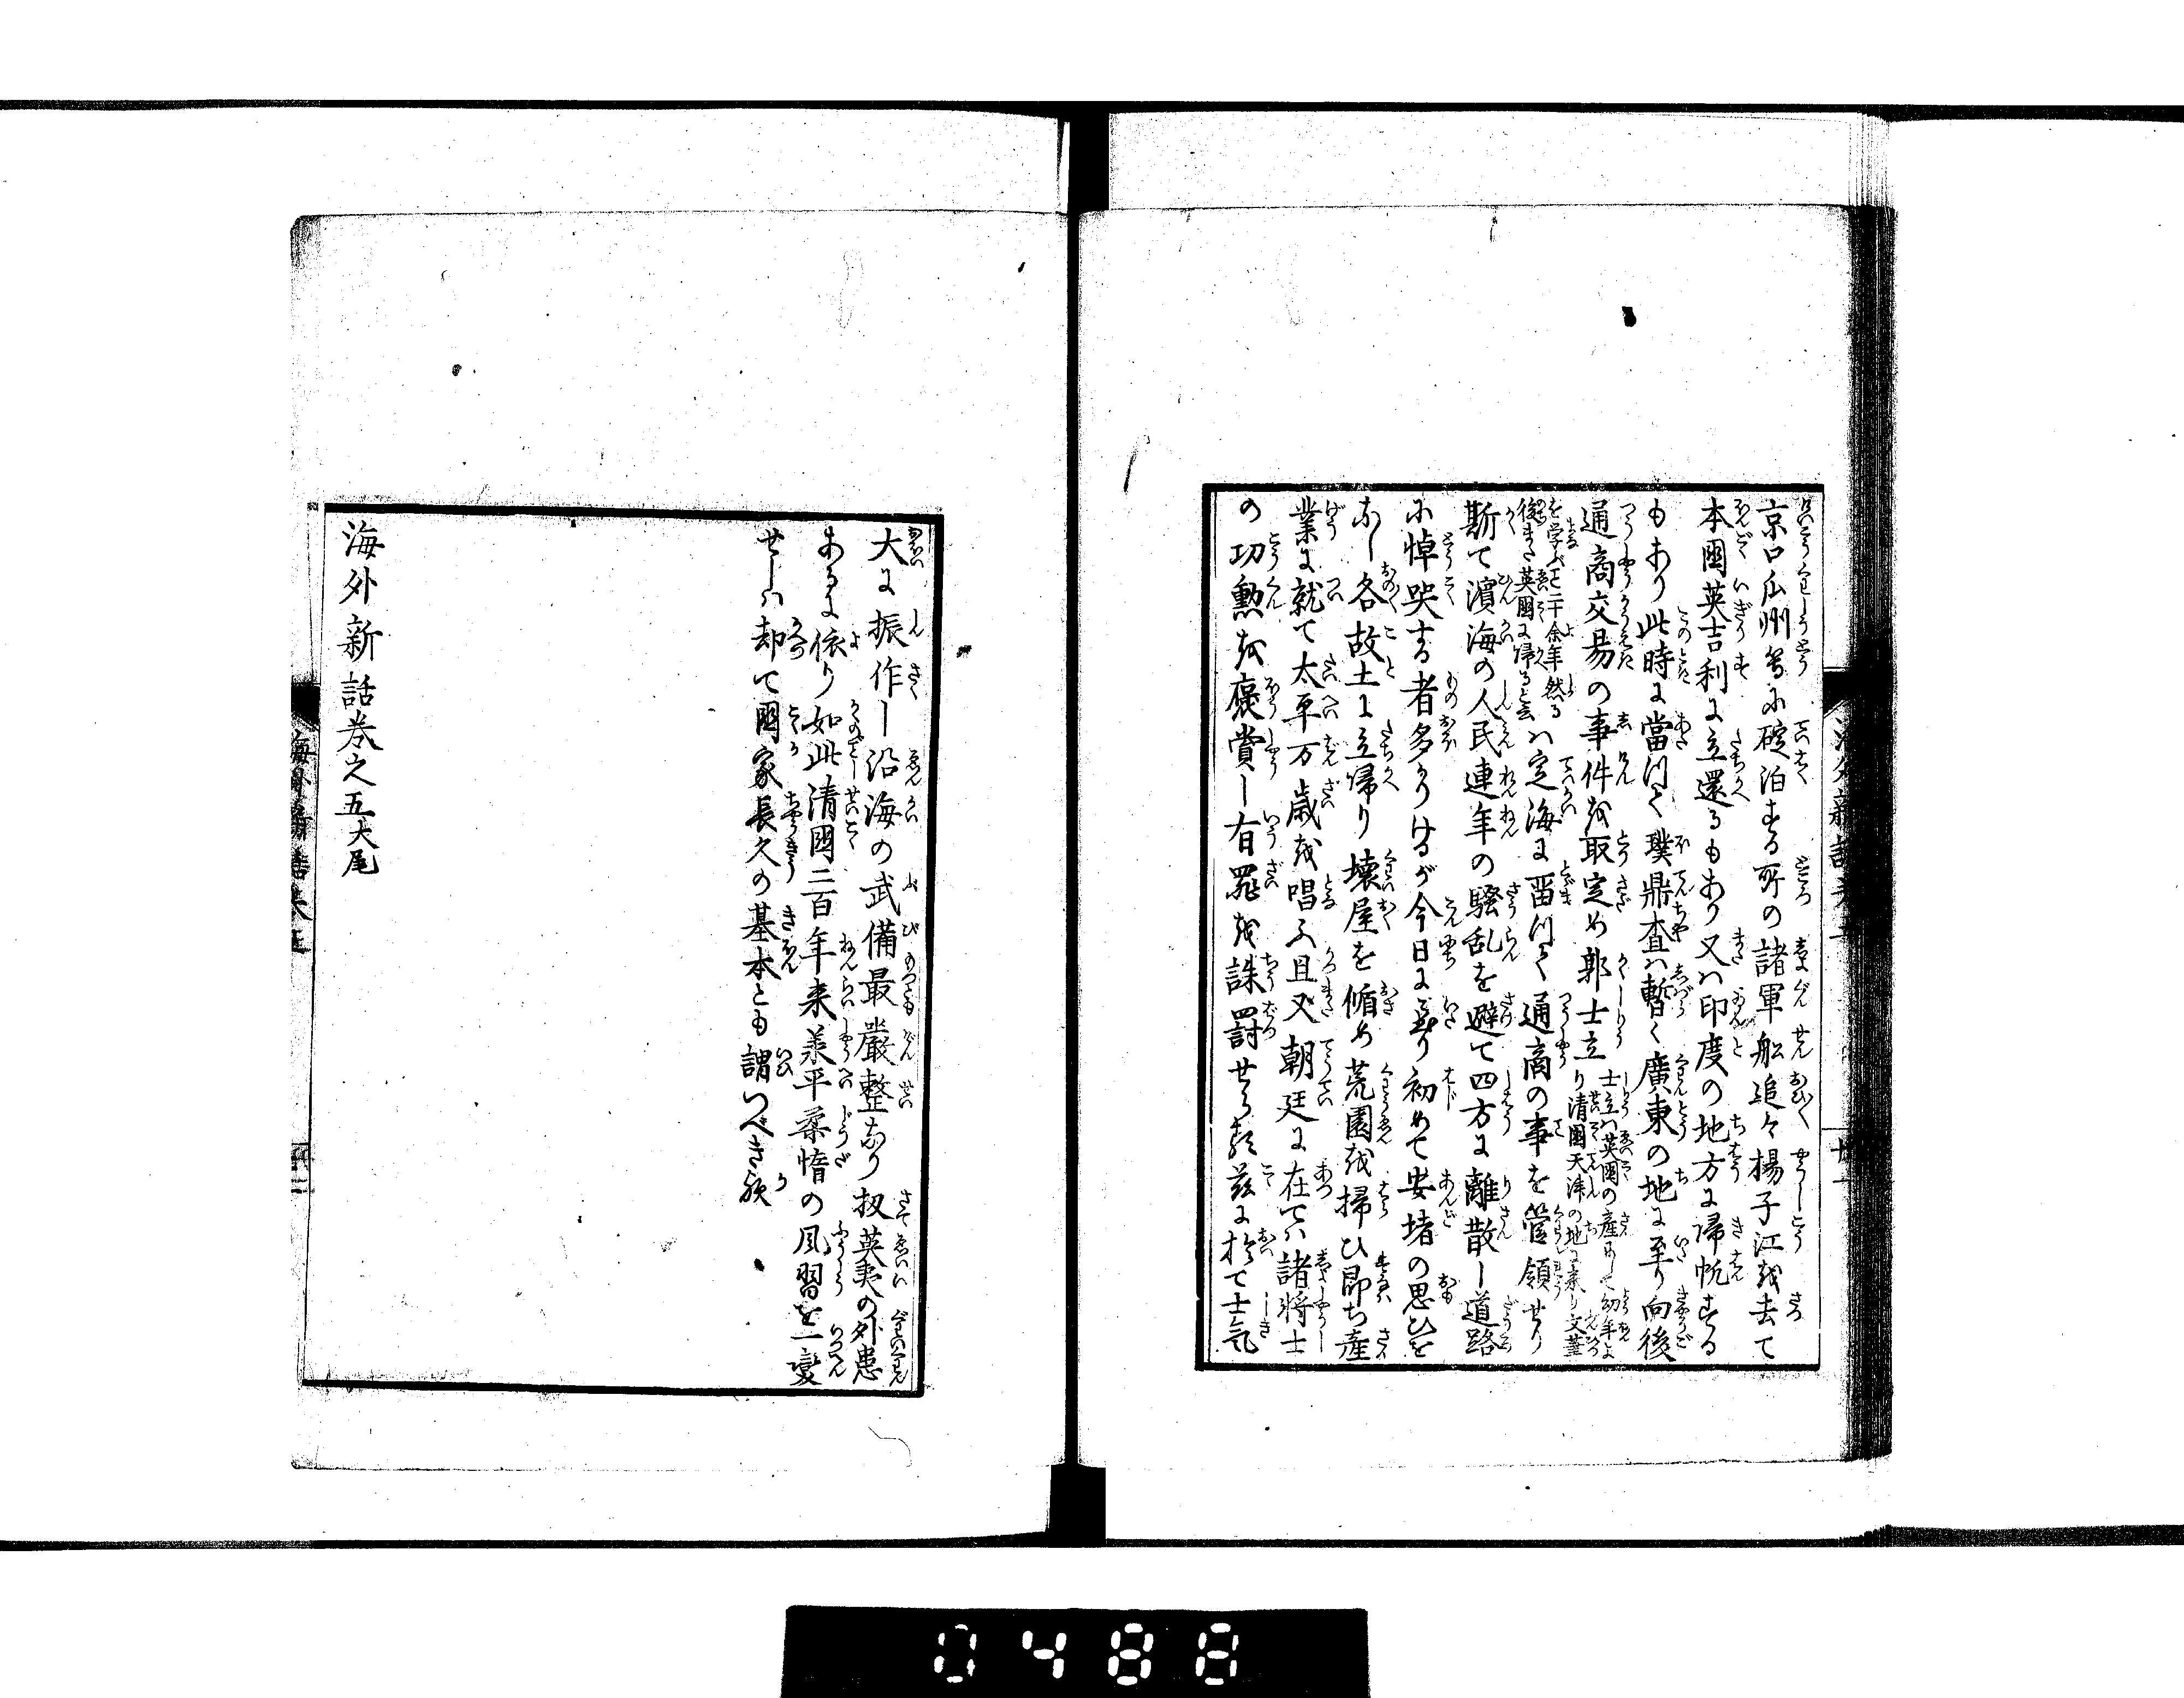 京口瓜州等に碇泊する所の諸軍舩追々揚子江を去て
本國英吉利に立還るもあり又ハ印度の地方に帰帆する
もあり此時に當りて璞鼎査ハ暫く廣東の地に至り向後
通商交易の事件を取定め郭士立り清國天津の地に来り文藝
士立ハ英國の産にして幼年よ
を学ぶこと二十余年然る
後また英國に帰ると云ハ定海に留りて通商の事を管領せり
斯て濱海の人民連年の騒乱を避て四方に離散し道路
に悼哭する者多かりけるが今日に至り初めて安堵の思ひを
なし各故土に立帰り壊屋を脩め荒園を掃ひ即ち産
業に就て太平万歳を唱ふ且又朝廷に在てハ諸将士
の功勲を褒賞し有罪を誅罰せらる茲に於て士気
大に振作し沿海の武備最嚴整なり扨英夷の外患
あるに依り如此清國二百年来羕平柔惰の風習を一變
せしハ却て國家長久の基本とも謂つべき歟
海外新話巻之五大尾
海外新話巻五
0488